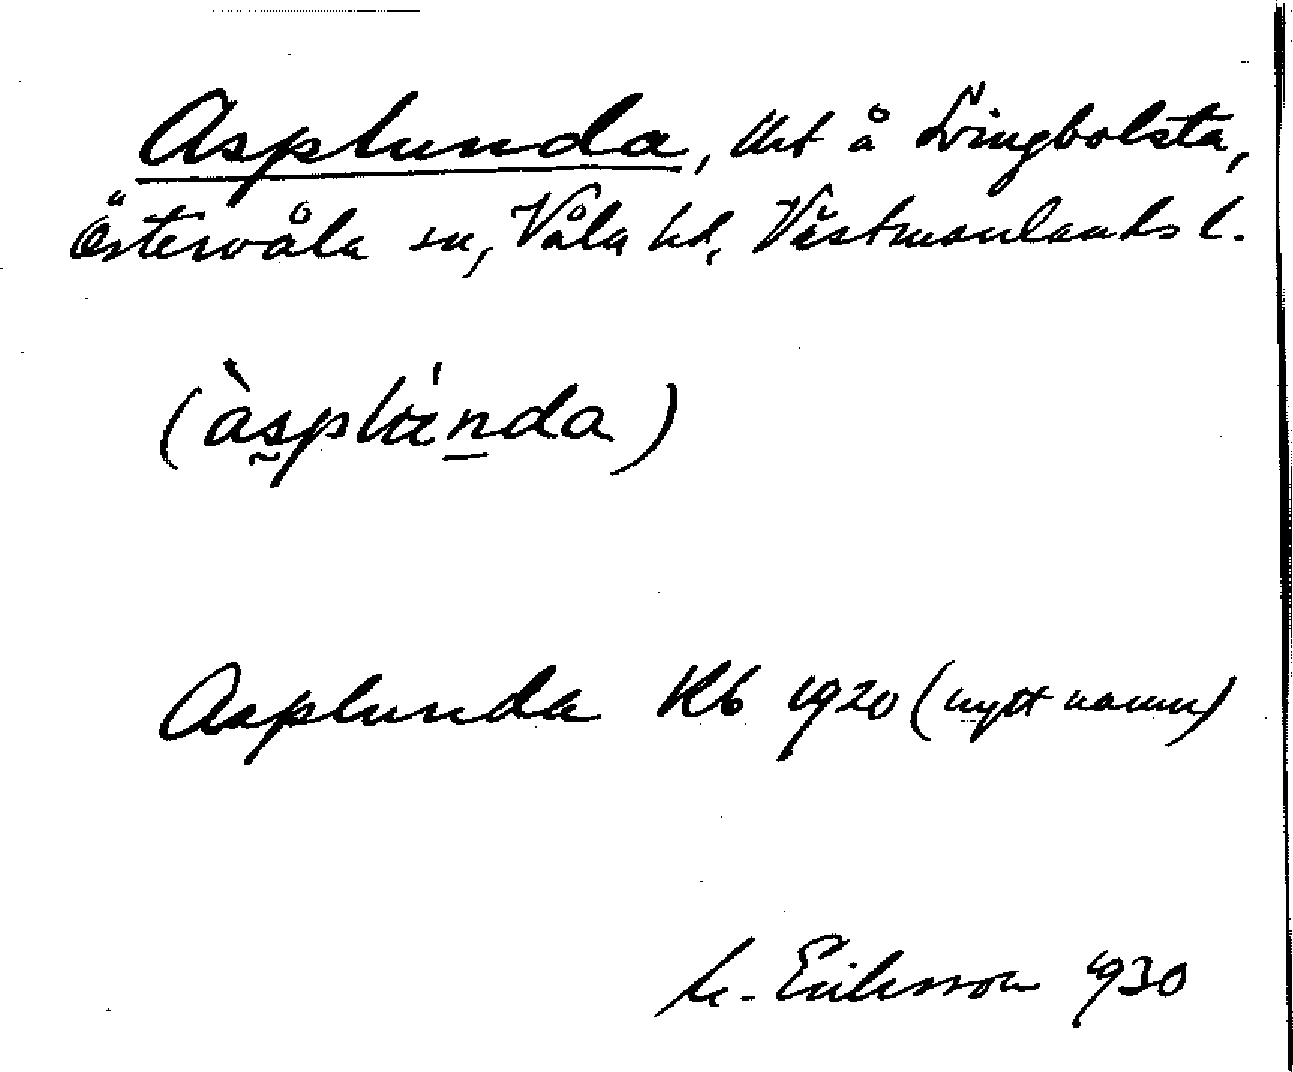 Asplunda, lht å Svingbolsta,
Östervåla sn, Våla hd, Västmanlands l.
(àspluńda)
Asplunda Kb 1920 (nytt namn)
M. Eriksson 1930